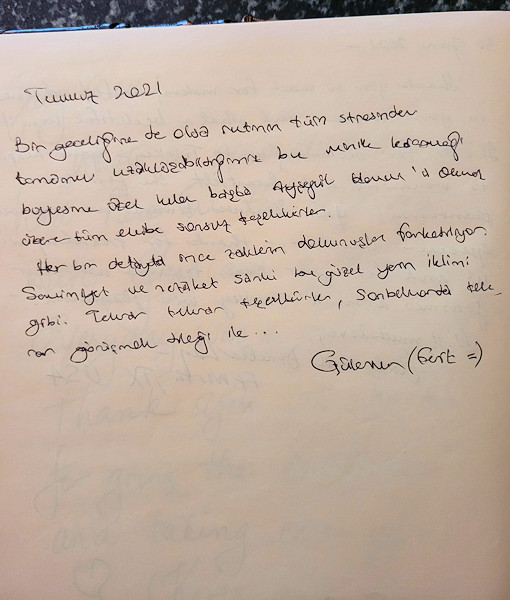 Temmuz 2021
Bir geceliğine de olsa rutinin tüm stresinden
tamamen uzaklaşabildiğimiz bu minik kaçamağı
böylesine özel kılan başta Ayşegül Hanım'a olmak
üzere tüm ekibe sonsuz teşekkürler.
Her bir detayda ince zaklein dokunuşlar farkediliyor.
Samimiyet ve nezaket sanki bu güzel yerin iklimi
gibi. Tekrar tekrar teşekkürler, Sonbaharda tek-
rar görüşmek dileği ile...
(Sert =)